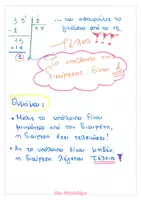 35 2
15
14
1
... και αφαιρούμε το
γινόμενο από το 15.
Τέλος!!!
Το υπόλοιπο της
διαίρεσης είναι 1
Θυμάμαι:
• Μόλις το υπόλοιπο είναι
μικρότερο από τον διαιρέτη,
η διαίρεση έχει τελειώσει!
• Αν το υπόλοιπο είναι μηδέν,
η διαίρεση λέγεται Τέλεια.